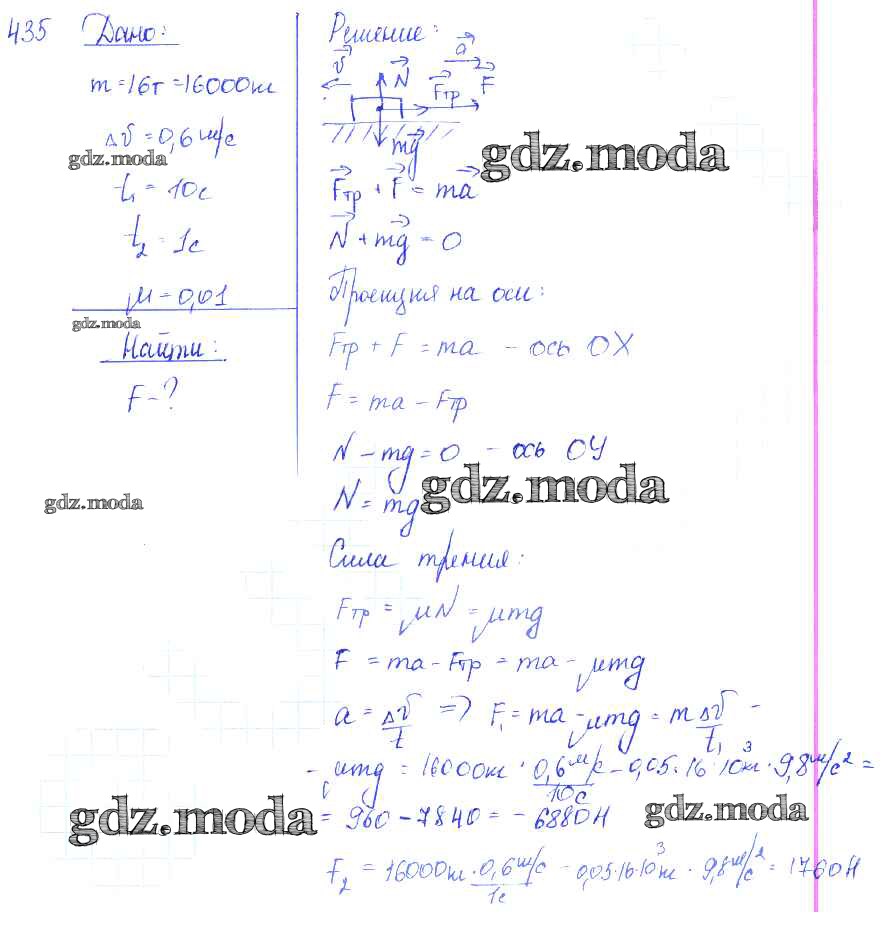 435 Дано:
m = 16т = 16000кг
Δv = 0,6 м/с
gdz.moda
t₁ = 10с
t₂ = 1с
μ = 0,01
gdz.moda
Найти:
F - ?
gdz.moda
Решение:
v N a Fтр F
mg
gdz.moda
Fтр + F = ma
N + mg = 0
Проекция на оси:
Fтр + F = ma - ось OX
F = ma - Fтр
N - mg = 0 - ось OY
N = mg
gdz.moda
Сила трения:
Fтр = μN = μmg
F = ma - Fтр = ma - μmg
a = Δv/t => F₁ = ma - μmg = m Δv/t₁ -
- μmg = 16000кг · 0,6 м/с / 10с - 0,05 · 16 · 10³ кг · 9,8 м/с² =
= 960 - 7840 = - 6880Н
gdz.moda
gdz.moda
F₂ = 16000кг · 0,6 м/с / 1с - 0,05 · 16 · 10³ кг · 9,8 м/с² = 1760Н